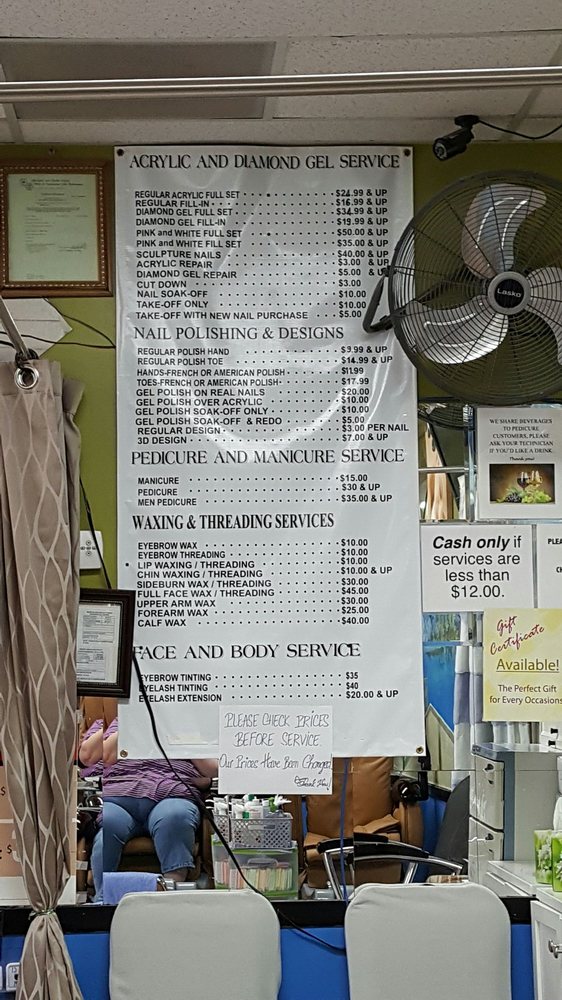 ACRYLIC AND DIAMOND GEL SERVICE
REGULAR ACRYLIC FULL SET $24.99 & UP
REGULAR FILL-IN $16.99 & UP
DIAMOND GEL FULL SET $34.99 & UP
DIAMOND GEL FILL-IN $19.99 & UP
PINK and WHITE FULL SET $50.00 & UP
PINK and WHITE FILL SET $35.00 & UP
SCULPTURE NAILS $40.00 & UP
ACRYLIC REPAIR $3.00 & UP
DIAMOND GEL REPAIR $5.00 & UP
CUT DOWN $3.00
NAIL SOAK-OFF $10.00
TAKE-OFF ONLY $10.00
TAKE-OFF WITH NEW NAIL PURCHASE $5.00
NAIL POLISHING & DESIGNS
REGULAR POLISH HAND $9.99 & UP
REGULAR POLISH TOE $14.99 & UP
HANDS-FRENCH OR AMERICAN POLISH $11.99
TOES-FRENCH OR AMERICAN POLISH $17.99
GEL POLISH ON REAL NAILS $20.00
GEL POLISH OVER ACRYLIC $10.00
GEL POLISH SOAK-OFF ONLY $10.00
GEL POLISH SOAK-OFF & REDO $5.00
REGULAR DESIGN $3.00 PER NAIL
3D DESIGN $7.00 & UP
PEDICURE AND MANICURE SERVICE
MANICURE $15.00
PEDICURE $30 & UP
MEN PEDICURE $35.00 & UP
WAXING & THREADING SERVICES
EYEBROW WAX $10.00
EYEBROW THREADING $10.00
LIP WAXING / THREADING $10.00
CHIN WAXING / THREADING $10.00 & UP
SIDEBURN WAXING / THREADING $30.00
FULL FACE WAX / THREADING $45.00
UPPER ARM WAX $30.00
FOREARM WAX $25.00
CALF WAX $40.00
FACE AND BODY SERVICE
EYEBROW TINTING $35
EYELASH TINTING $40
EYELASH EXTENSION $20.00 & UP
PLEASE CHECK PRICES
BEFORE SERVICE.
Our Prices Have Been Changed
Lasko
WE SHARE BEVERAGES
TO PEDICURE
CUSTOMERS, PLEASE
ASK YOUR TECHNICIAN
IF YOU'D LIKE A DRINK.
Thank you!
Cash only if
services are
less than
$12.00.
Gift
Certificate
Available!
The Perfect Gift
for Every Occasions